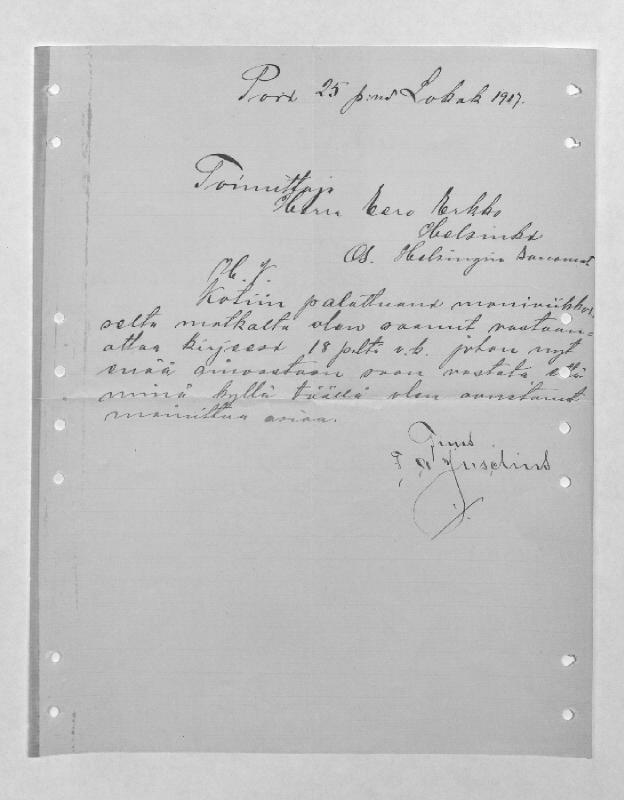 Pori 25 p:nä Lokak 1917.
Toimittaja
Herra Eero Erkko
Helsinki
Os. Helsingin Sanomat
H. V.
Kotiin palattuani moniviikkoi
selta matkalta olen saanut vastaan=
ottaa kirjeesi 18 p:ltä t.k. johon nyt
enää ainoastaan saan vastata että
minä kyllä täällä olen avustanut
mainittua asiaa.
Tuus
F. A. Juselius